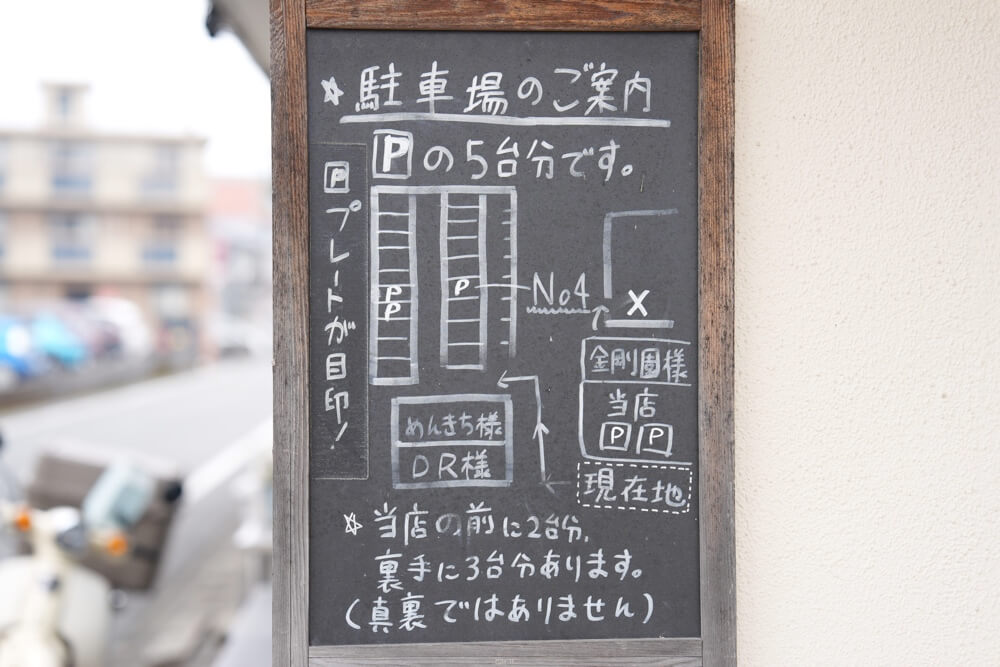 ☆駐車場のご案内
Pの5台分です。
Pプレートが目印！
P
P
P
No4
X
金剛園様
当店
P P
めんきち様
DR様
現在地
☆当店の前に2台分、
裏手に3台分あります。
(真裏ではありません)